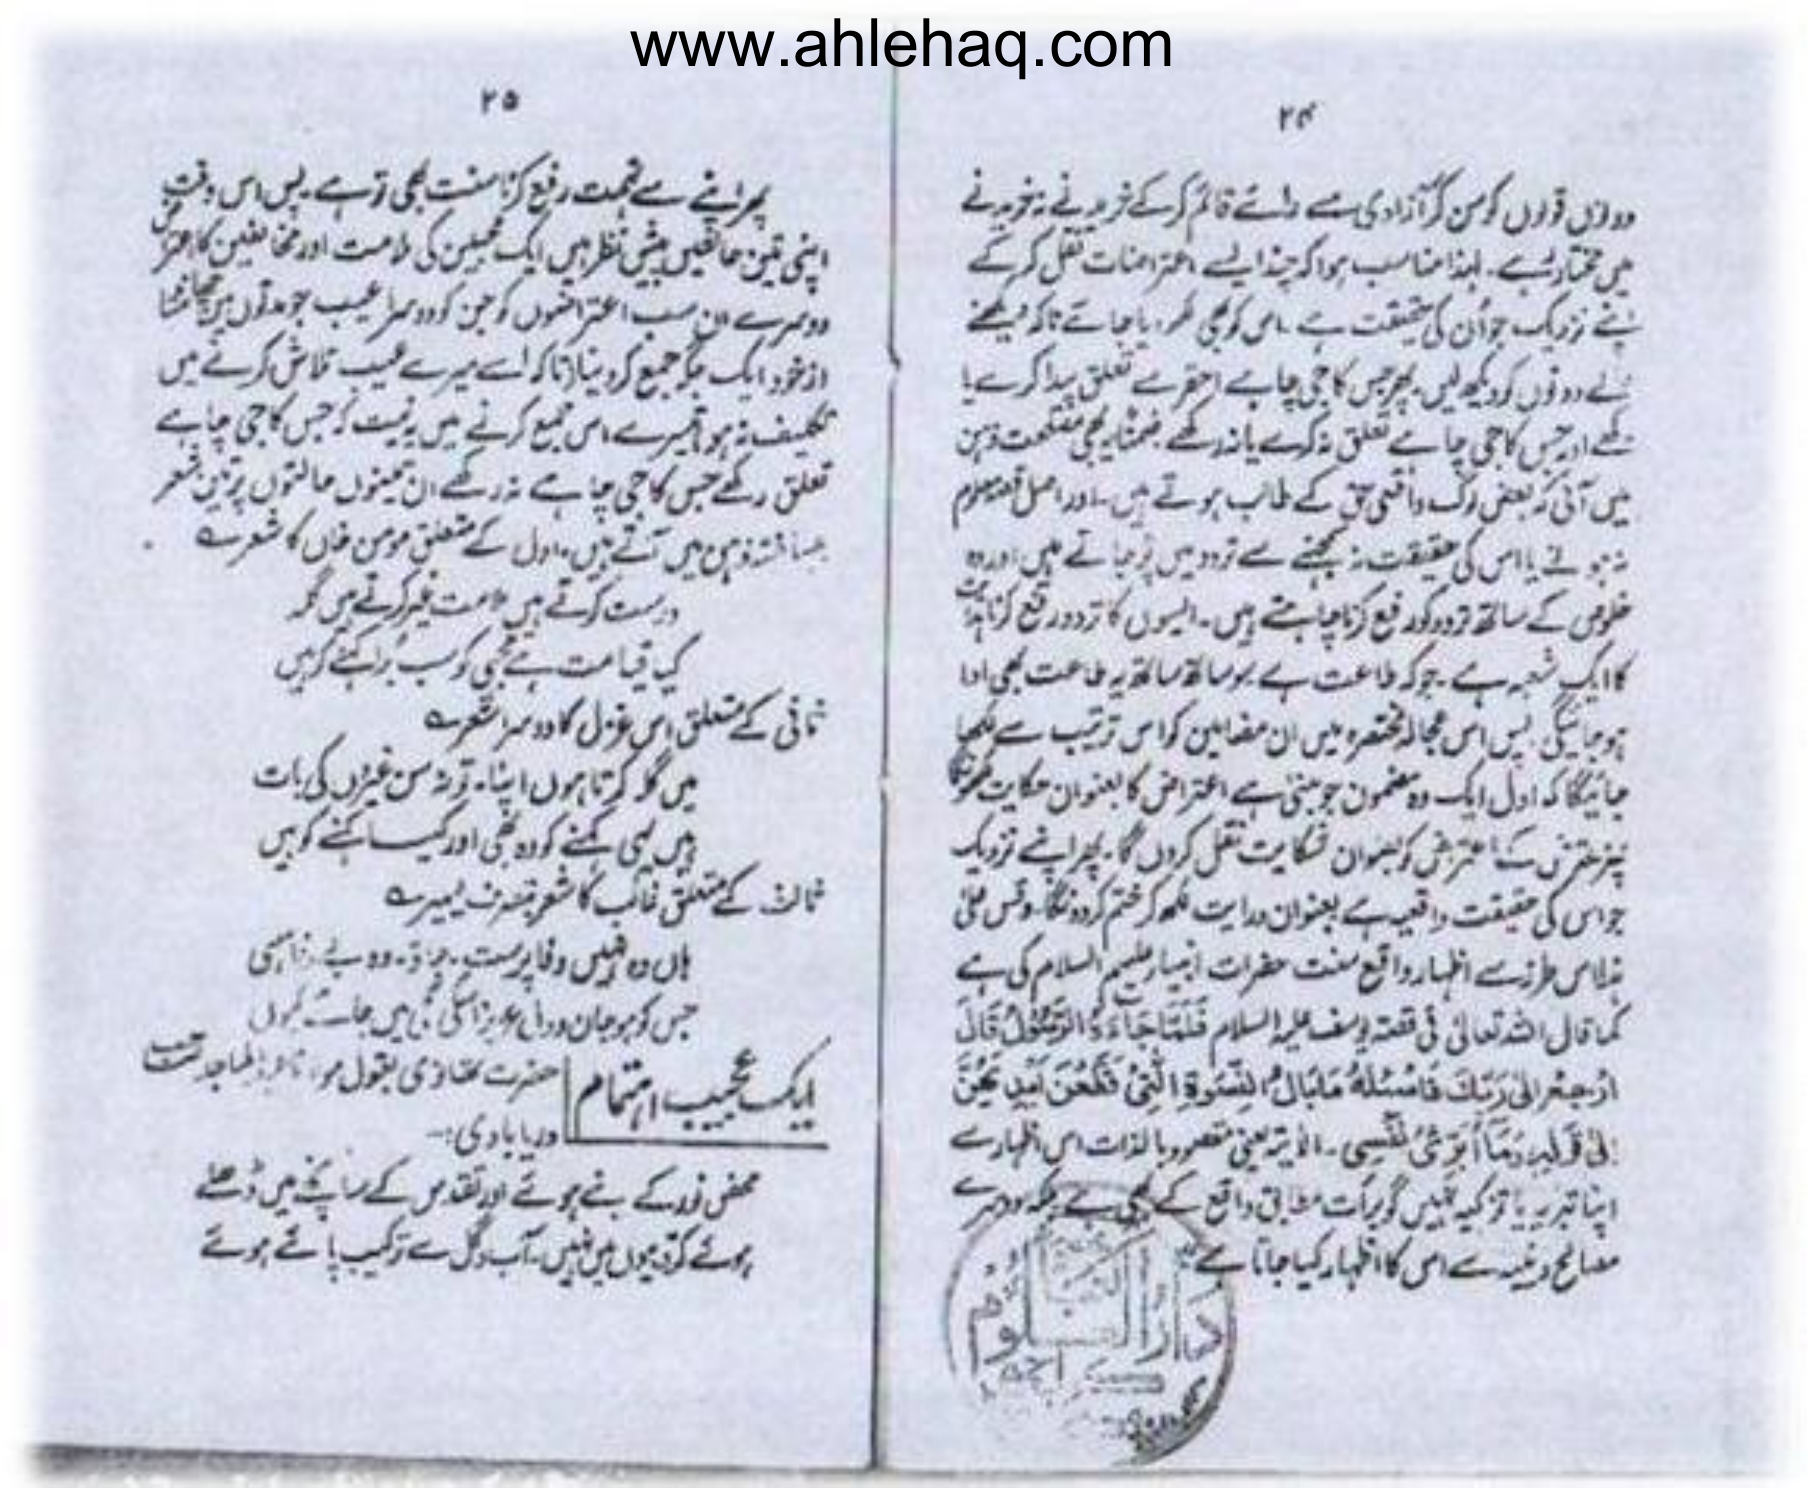 www.ahlehaq.com
۲۴
دونوں قولوں کو سن کر آزادی سے رائے قائم کر کے خریدنے نہ خریدنے
میں مختار رہے۔ لہٰذا مناسب ہوا کہ چند ایسے اعتراضات نقل کر کے
اپنے نزدیک جو اُن کی حقیقت ہے ۔ اس کو بھی ظاہر کر دیا جاتے تاکہ دیکھنے
والے دونوں کو دیکھ لیں۔ پھر جس کا جی چاہے احقر سے تعلق پیدا کرے یا
رکھے اور جس کا جی چاہے تعلق نہ کرے یا نہ رکھے ۔ ضمناً یہ بھی منفعت ذہن
میں آئی کہ بعض لوگ واقعی حق کے طالب ہوتے ہیں ۔ اور اصل قصہ معلوم
نہ ہونے یا اس کی حقیقت نہ سمجھنے سے تردد میں پڑ جاتے ہیں اور وہ
خلوص کے ساتھ تردد کو رفع کرنا چاہتے ہیں ۔ ایسوں کا تردد رفع کرنا ہدایت
کا ایک شعبہ ہے ۔ جو کہ طاعت ہے سو ساتھ ساتھ یہ طاعت بھی ادا
ہو جائیگی پس اس عجالہ مختصرہ میں ان مضامین کو اس ترتیب سے لکھا
جائیگا کہ اول ایک وہ مضمون جو مبنی ہے اعتراض کا بعنوان حکایت لکھوں گا
پھر معترض کے اعتراض کو بعنوان شکایت نقل کروں گا۔ پھر اپنے نزدیک
جو اس کی حقیقت واقعیہ ہے بعنوان درایت لکھ کر ختم کر دونگا۔ وقس علی
ہذا اس طرز سے اظہار واقع سنت حضرات انبیاء علیہم السلام کی ہے
کما قال اللہ تعالیٰ فی قصۃ یوسف علیہ السلام فَلَمَّا جَاءَہُ الرَّسُوْلُ قَالَ
ارْجِعْ اِلیٰ رَبِّكَ فَاسْئَلْهُ مَا بَالُ النِّسْوَةِ الّٰتِیْ قَطَّعْنَ اَیْدِیَهُنَّ
اِلیٰ قولہ وَمَا اُبَرِّئُ نَفْسِی ۔ الآیۃ یعنی مقصود بالذات اس اظہار سے
اپنا تبریہ یا تزکیہ نہیں گو برأت مطابق واقع کے بھی ہے بلکہ دوسرے
مصالح دینیہ سے اس کا اظہار کیا جاتا ہے
دار العلوم
۲۵
پھر اپنے سے تہمت رفع کرنا سنت بھی تو ہے ۔ پس اس وقت
اپنی تین حالتیں پیش نظر ہیں ایک محبین کی ملامت اور مخالفین کا اعتراض
دوسرے ان سب اعتراضوں کو جن کو دوسرا عیب جو مدتوں میں چھانٹتا
از خود ایک جگہ جمع کر دینا (تاکہ اسے میرے عیب تلاش کرنے میں
تکلیف نہ ہو) تیسرے اس جمع کرنے میں یہ نیت کہ جس کا جی چاہے
تعلق رکھے جس کا جی چاہے نہ رکھے ان تینوں حالتوں پر تین شعر
بیساختہ ذہن میں آتے ہیں ۔ اول کے متعلق مومن خاں کا شعر ہے
درست کرتے ہیں ملامت غیر کرتے ہیں گلہ
کیا قیامت ہے مجھی کو سب بُرا کہنے کو ہیں
ثانی کے متعلق اس غزل کا دوسرا شعر ہے
میں گلہ کرتا ہوں اپنا۔ تو نہ سن غیروں کی بات
ہیں یہی کہنے کو وہ بھی اور کیا کہنے کو ہیں
ثالث کے متعلق غالب کا شعر بتصرف یسیر ہے
ہاں وہ نہیں وفا پرست ۔ جاؤ۔ وہ بے وفا سہی
جس کو ہو جان و دل عزیز اسکی گلی میں جائے کیوں
ایک عجیب اہتمام
حضرت تھانوی بقول مولانا عبدالماجد صاحب
دریابادی:۔
محض نور کے بنے ہوئے اور تقدس کے سانچے میں ڈھلے
ہوئے کروبیوں میں نہیں ۔ آب و گل سے ترکیب پائے ہوئے